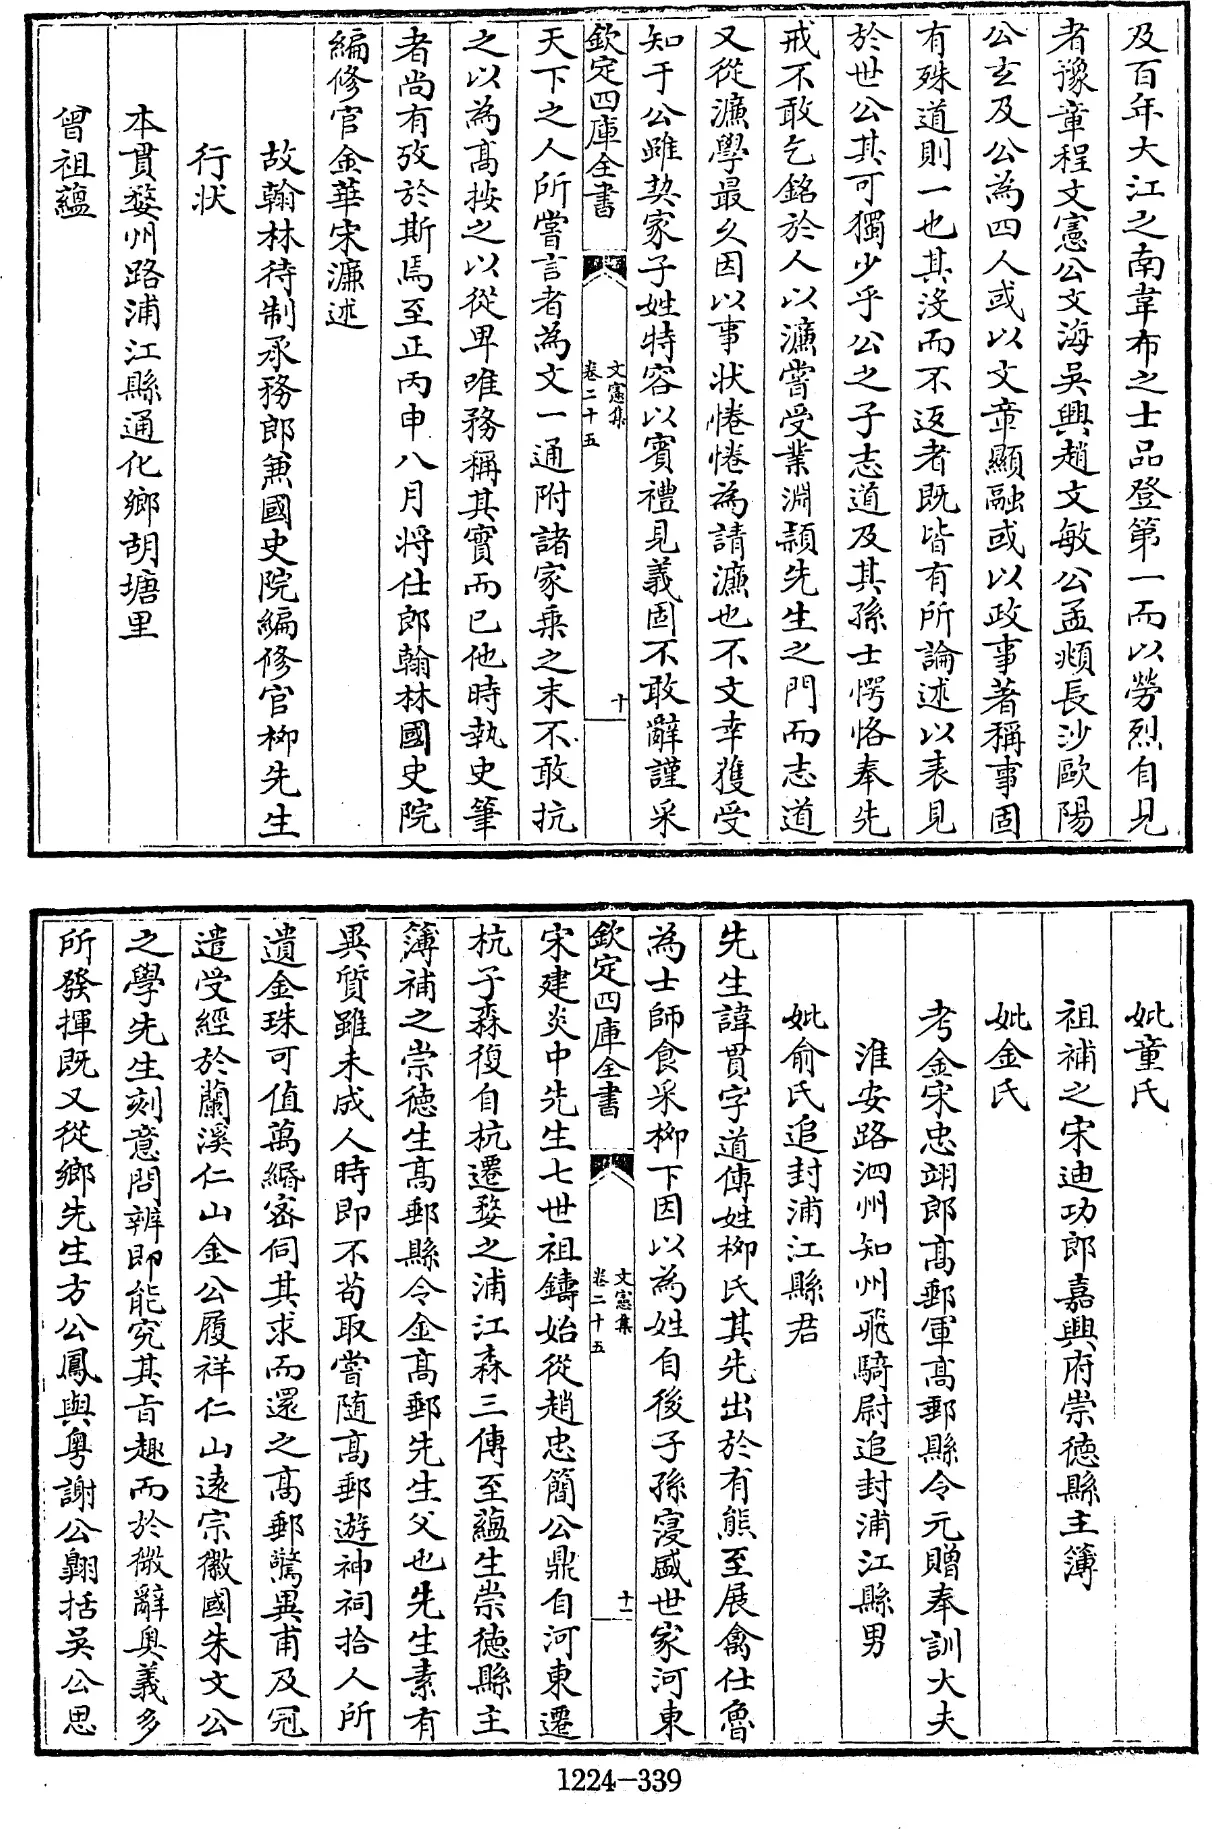 及百年大江之南韋布之士品登第一而以勞烈自見
者豫章程文憲公文海吳興趙文敏公孟頫長沙歐陽
公玄及公為四人或以文章顯融或以政事著稱事固
有殊道則一也其沒而不返者既皆有所論述以表見
於世公其可獨少乎公之子志道及其孫士愕恪奉先
戒不敢乞銘於人以濂嘗受業淵頴先生之門而志道
又從濂學最久因以事狀惓惓為請濂也不文幸獲受
知于公雖契家子姓特容以賓禮見義固不敢辭謹采
欽定四庫全書
文憲集
卷二十五
十
天下之人所嘗言者為文一通附諸家乗之末不敢抗
之以為髙按之以從卑唯務稱其實而已他時執史筆
者尚有攷於斯焉至正丙申八月将仕郎翰林國史院
編修官金華宋濂述
故翰林待制承務郎兼國史院編修官柳先生
行状
本貫婺州路浦江縣通化鄉胡塘里
曾祖藴
妣童氏
祖補之宋迪功郎嘉興府崇徳縣主簿
妣金氏
考金宋忠翊郎髙郵軍髙郵縣令元贈奉訓大夫
淮安路泗州知州飛騎尉追封浦江縣男
妣俞氏追封浦江縣君
先生諱貫字道傳姓柳氏其先出於有熊至展禽仕魯
為士師食采柳下因以為姓自後子孫寖盛世家河東
欽定四庫全書
文憲集
卷二十五
十一
宋建炎中先生七世祖鑄始從趙忠簡公鼎自河東遷
杭子森復自杭遷婺之浦江森三傳至藴生崇徳縣主
簿補之崇徳生髙郵縣令金髙郵先生父也先生素有
異質雖未成人時即不苟取嘗随髙郵遊神祠拾人所
遺金珠可值萬緡密伺其求而還之髙郵驚異甫及冠
遣受經於蘭溪仁山金公履祥仁山逺宗徽國朱文公
之學先生刻意問辨即能究其旨趣而於微辭奥義多
所發揮既又從鄉先生方公鳳與粤謝公翺括吳公思
1224—339